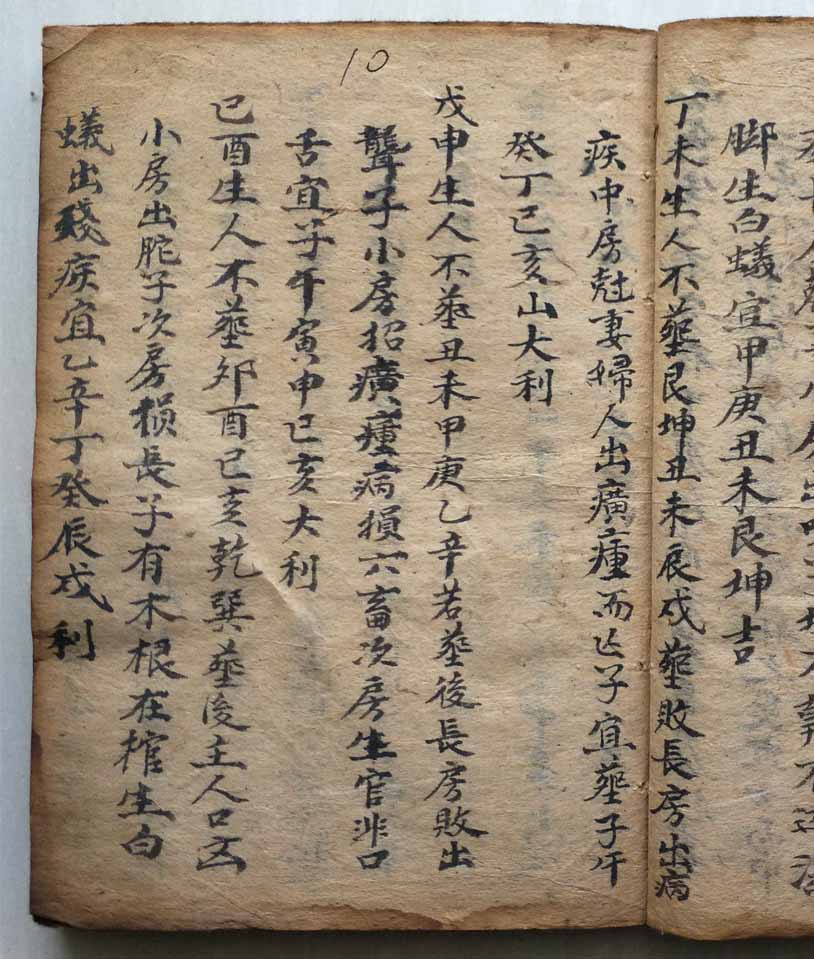 脚生白蟻宜甲庚丑未艮坤吉
丁未生人不葬艮坤丑未辰戌葬敗長房出病
疾中房尅妻婦人出癀瘇而亡子宜葬子午
癸丁己亥山大利
戊申生人不葬丑未甲庚乙辛若葬後長房敗出
聾子小房招癀瘇病損六畜次房生官非口
舌宜子午寅申巳亥大利
己酉生人不葬卯酉巳亥乾巽葬後主人口凶
小房出駝子次房損長子有木根在棺生白
蟻出殘疾宜乙辛丁癸辰戌利
10